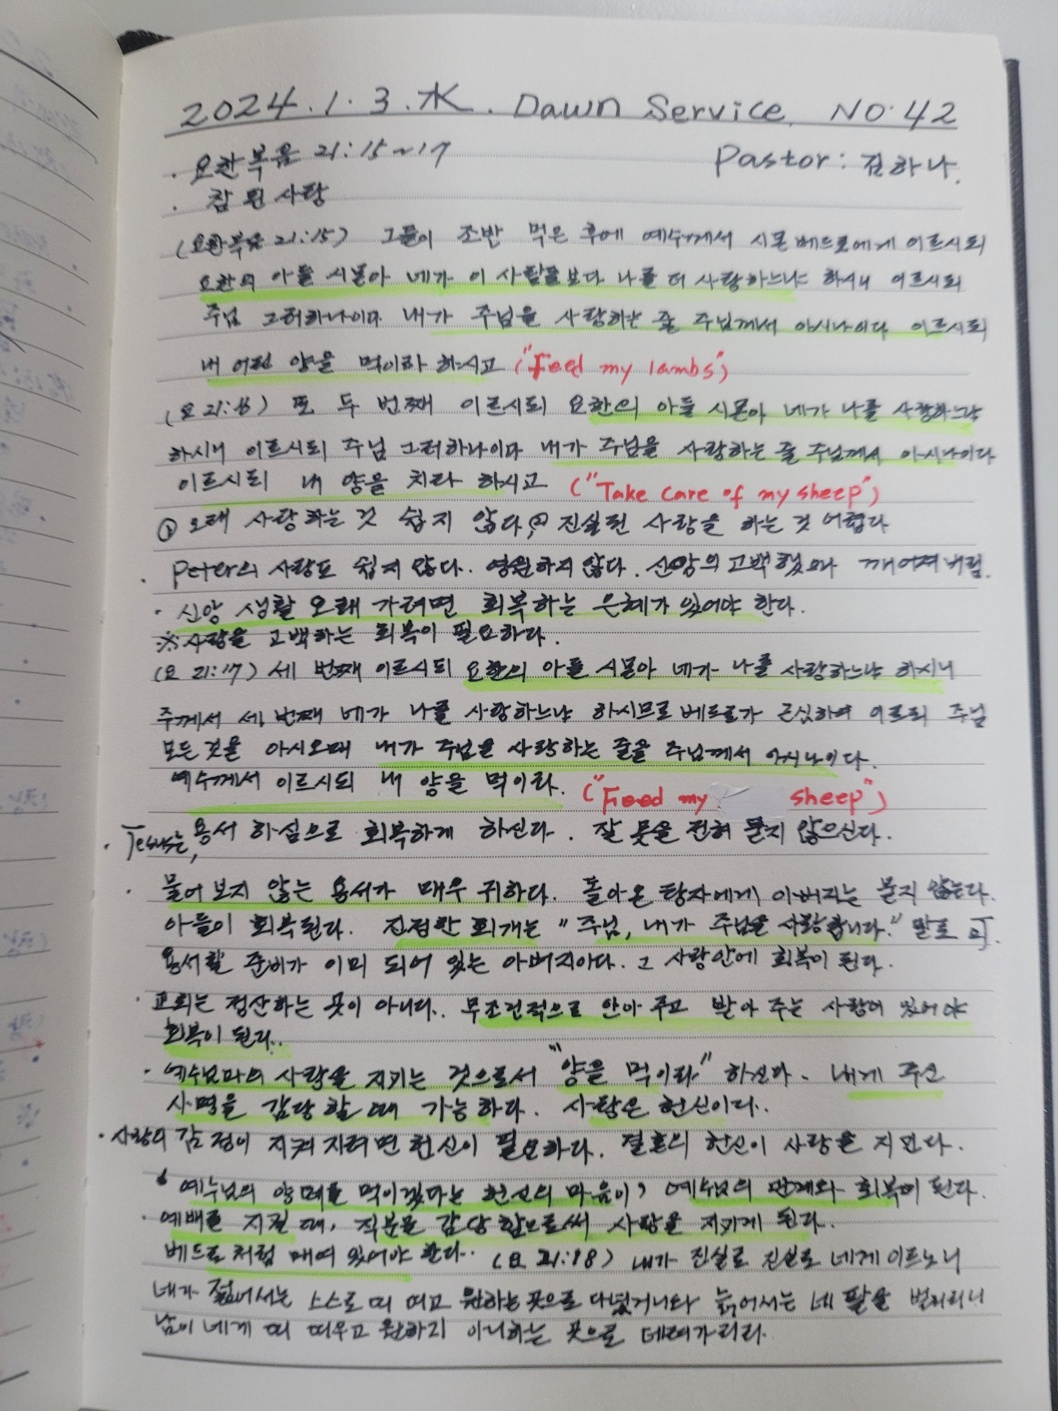 2024.1.3.水. Dawn Service. NO.42
· 요한복음 21:15~17 Pastor: 김하나.
· 참 된 사랑
(요한복음 21:15) 그들이 조반 먹은 후에 예수께서 시몬 베드로에게 이르시되
요한의 아들 시몬아 네가 이 사람들보다 나를 더 사랑하느냐 하시니 이르시되
주님 그러하나이다 내가 주님을 사랑하는 줄 주님께서 아시나이다 이르시되
내 어린 양을 먹이라 하시고 ("Feed my lambs")
(요 21:16) 또 두 번째 이르시되 요한의 아들 시몬아 네가 나를 사랑하느냐
하시니 이르시되 주님 그러하나이다 내가 주님을 사랑하는 줄 주님께서 아시나이다
이르시되 내 양을 치라 하시고 ("Take care of my sheep")
① 오래 사랑하는 것 쉽지 않다, ② 진실된 사랑을 하는 것 어렵다
· Peter의 사랑도 쉽지 않다. 영원하지 않다. 신앙의 고백했으나 깨어져 버림.
· 신앙 생활 오래 가려면 회복하는 은혜가 있어야 한다.
※ 사랑을 고백하는 회복이 필요하다.
(요 21:17) 세 번째 이르시되 요한의 아들 시몬아 네가 나를 사랑하느냐 하시니
주께서 세 번째 네가 나를 사랑하느냐 하시므로 베드로가 근심하여 이르되 주님
모든 것을 아시오매 내가 주님을 사랑하는 줄을 주님께서 아시나이다.
예수께서 이르시되 내 양을 먹이라. ("Feed my sheep")
· Jesus는, 용서 하심으로 회복하게 하신다. 잘 못을 전혀 묻지 않으신다.
· 물어 보지 않는 용서가 매우 귀하다. 돌아온 탕자에게 아버지는 묻지 않는다.
아들이 회복된다. 진정한 회개는 "주님, 내가 주님을 사랑합니다." 말로 可.
용서할 준비가 이미 되어 있는 아버지이다. 그 사랑안에 회복이 된다.
· 교회는 정산하는 곳이 아니다.. 무조건적으로 안아 주고 받아 주는 사랑이 있어야
회복이 된다..
· 예수님과의 사랑을 지키는 것으로서 "양을 먹이라" 하신다. 내게 주신
사명을 감당 할 때 가능하다. 사랑은 헌신이다..
· 사랑의 감정이 지켜 지려면 헌신이 필요하다. 결혼의 헌신이 사랑을 지킨다.
· 예수님의 양떼를 먹이겠다는 헌신의 마음이, 예수님의 관계와 회복이 된다.
· 예배를 지킬 때, 직분을 감당 함으로써 사랑을 지키게 된다.
베드로 처럼 매여 있어야 한다.. (요 21:18) 내가 진실로 진실로 네게 이르노니
네가 젊어서는 스스로 띠 띠고 원하는 곳으로 다녔거니와 늙어서는 네 팔을 벌리리니
남이 네게 띠 띠우고 원하지 아니하는 곳으로 데려가리라.